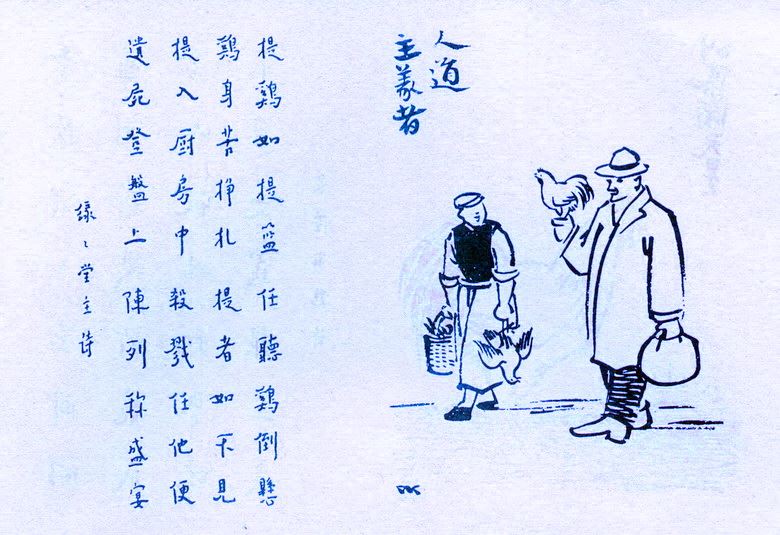 人道
主義者
提鷄如提籃任聽鷄倒懸
鷄身苦掙扎提者如不見
提入厨房中殺戮任他便
遺屍登盤上陳列称盛宴
緣〻堂主詩
TK